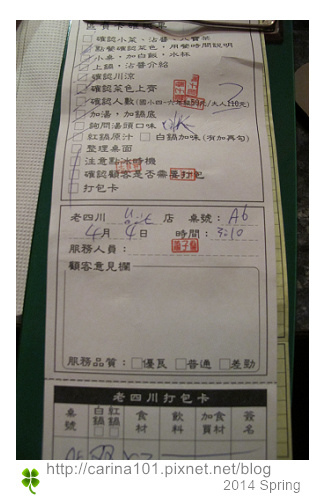 確認小菜、沾醬、入費菜
點餐確認菜色，用餐時間說明
小桌，加白飯，水杯
上鍋，沾醬介紹
確認川涼
確認菜色上齊
確認人數(國小四-六年級 元/大人110元)
加湯，加鍋底
詢問湯頭口味 OK
紅鍋原汁 □白鍋加味(有加再勾)
整理桌面
注意點冰時機
確認顧客是否需要打包
打包卡
老四川 店 桌號：A6
4月4日 時間：3:10
服務人員：
顧客意見欄
服務品質：□優良 □普通 □差勁
老四川打包卡
桌號 白鍋 紅鍋 食材 飲料 加買 食材 簽名
http://carina101.pixnet.net/blog
2014 Spring